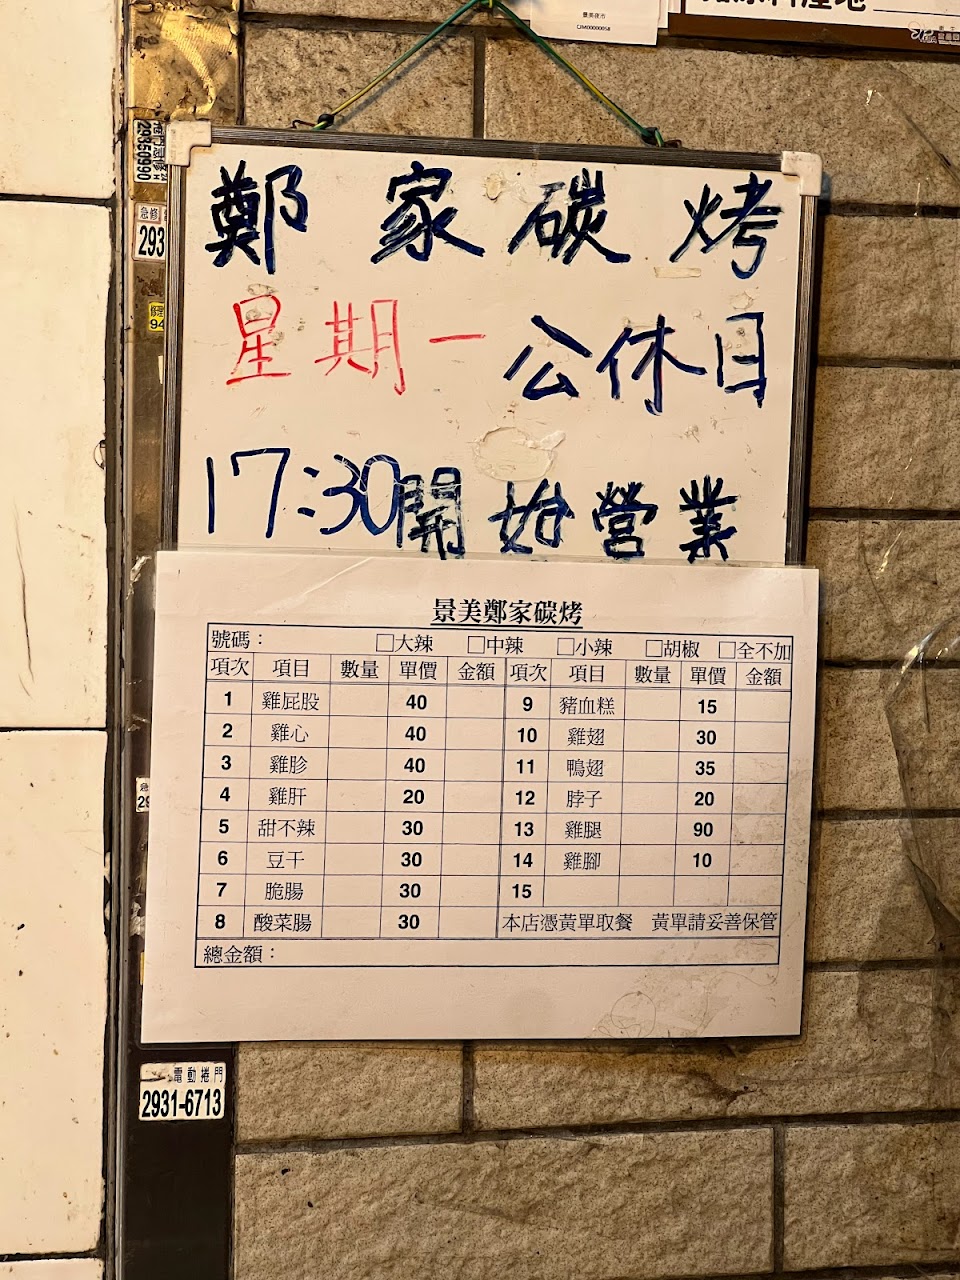 景美夜市
鄭家碳烤
星期一公休日
17:30開始營業
景美鄭家碳烤
號碼： □大辣 □中辣 □小辣 □胡椒 □全不加
項次 項目 數量 單價 金額 項次 項目 數量 單價 金額
1 雞屁股 40 9 豬血糕 15
2 雞心 40 10 雞翅 30
3 雞胗 40 11 鴨翅 35
4 雞肝 20 12 脖子 20
5 甜不辣 30 13 雞腿 90
6 豆干 30 14 雞腳 10
7 脆腸 30 15
8 酸菜腸 30 本店憑黃單取餐 黃單請妥善保管
總金額：
29350990
急修
293
94
電動捲門
2931-6713